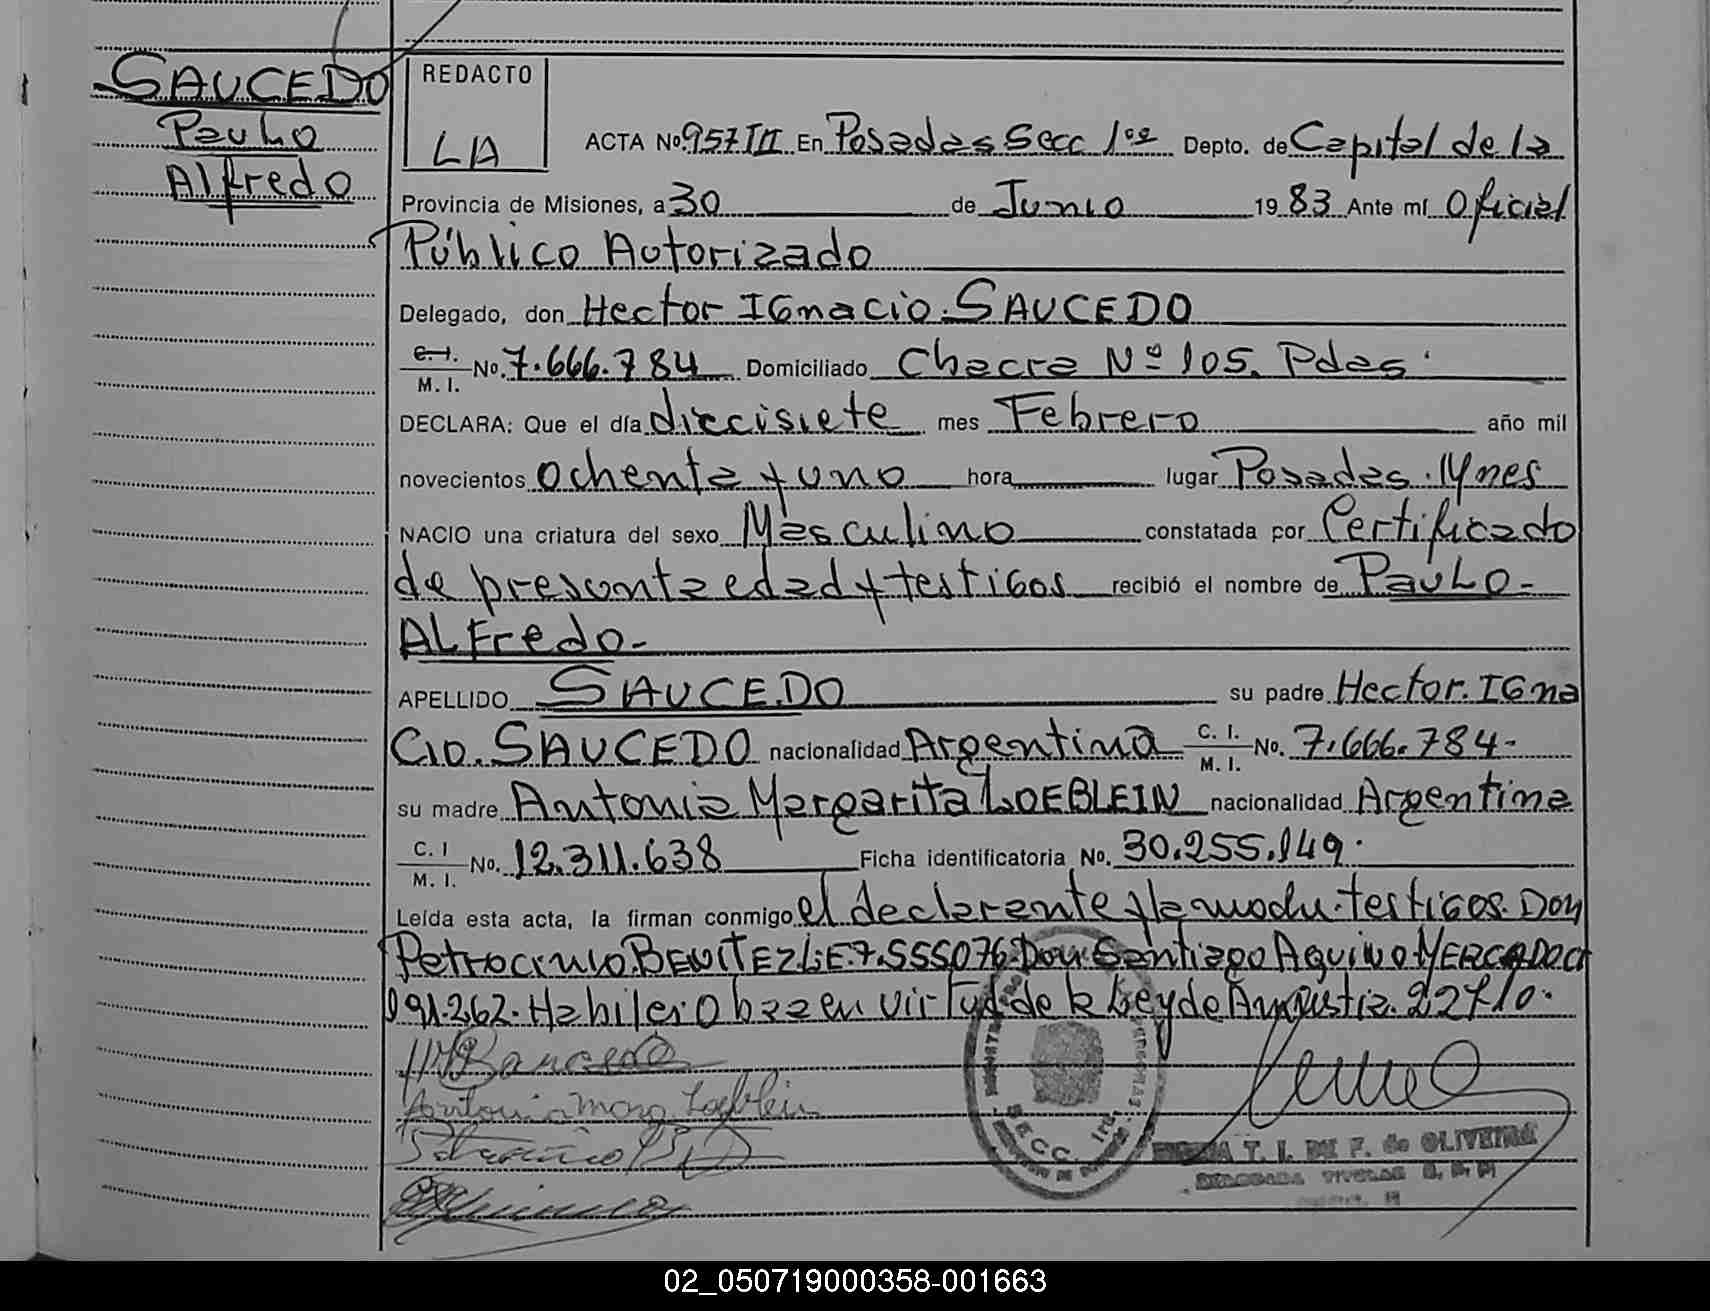 SAUCEDO
Paulo
Alfredo
REDACTO
LA
ACTA No. 957 III En Posadas Secc 1ra Depto. de Capital de la
Provincia de Misiones, a 30 de Junio 19 83 Ante mí Oficial
Público Autorizado
Delegado, don Hector IGnacio. SAUCEDO
C.I. M. I. No. 7.666.784 Domiciliado Chacra Nº 105. Pdas.
DECLARA: Que el día diecisiete mes Febrero año mil
novecientos ochenta y uno hora lugar Posadas. Mnes
NACIO una criatura del sexo Masculino constatada por Certificado
de presunta edad y testigos recibió el nombre de PAULO-
ALFredo-
APELLIDO SAUCEDO su padre Hector. IGna
Cio. SAUCEDO nacionalidad Argentina C. I. M. I. No. 7.666.784-
su madre Antonia Margarita LOEBLEIN nacionalidad Argentina
C. I M. I. No. 12.311.638 Ficha identificatoria No. 30.255.149.
Leída esta acta, la firman conmigo el declarente y la madre. testigos. Don
Patrocinio. BENITEZ L.E. 7.555076. Don Santiago Aquino MERCADO CI
091.262. Habiles. Obra en virtud de la Ley de Amnistia. 22710.
Antonia Marg. Loeblein
SECC. 1ra
T. I. DE F. de OLIVEIRA
DELEGADA TITULAR
02_050719000358-001663